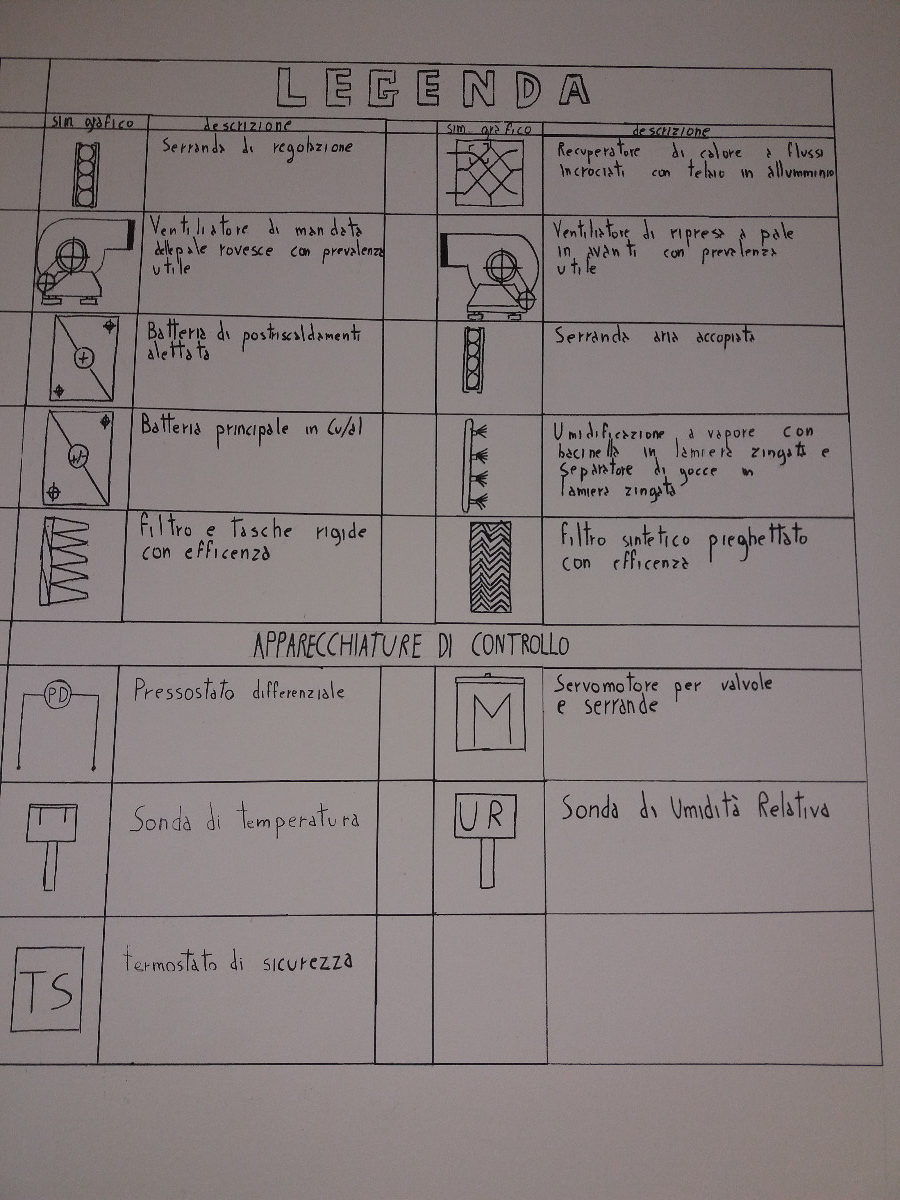 LEGENDA
sim grafico
descrizione
sim. grafico
descrizione
Serranda di regolazione
Recuperatore di calore a flussi
incrociati con telaio in allumminio
Ventiliatore di mandata
delle pale rovesce con prevalenza
utile
Ventiliatore di ripresa a pale
in avanti con prevalenza
utile
Batteria di postriscaldamenti
alettata
Serranda aria accopiata
Batteria principale in Cu/al
Umidificazione a vapore con
bacinella in lamiera zingati e
separatore di gocce in
lamiera zingata
filtro e tasche rigide
con efficenza
filtro sintetico pieghettato
con efficenza
APPARECCHIATURE DI CONTROLLO
PD
Pressostato differenziale
M
Servomotore per valvole
e serrande
Sonda di temperatura
UR
Sonda di Umidità Relativa
TS
termostato di sicurezza